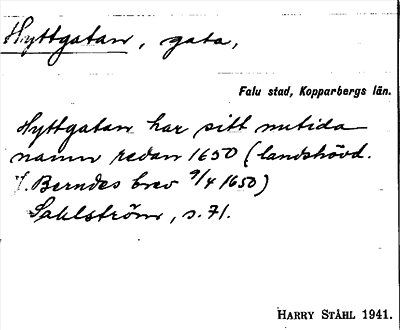 Hyttgatan, gata,
Falu stad, Kopparbergs län.
Hyttgatan har sitt nutida
namn redan 1650 (landshövd.
J. Berndes brev 9/4 1650)
Sahlström, s. 71.
HARRY STÅHL 1941.